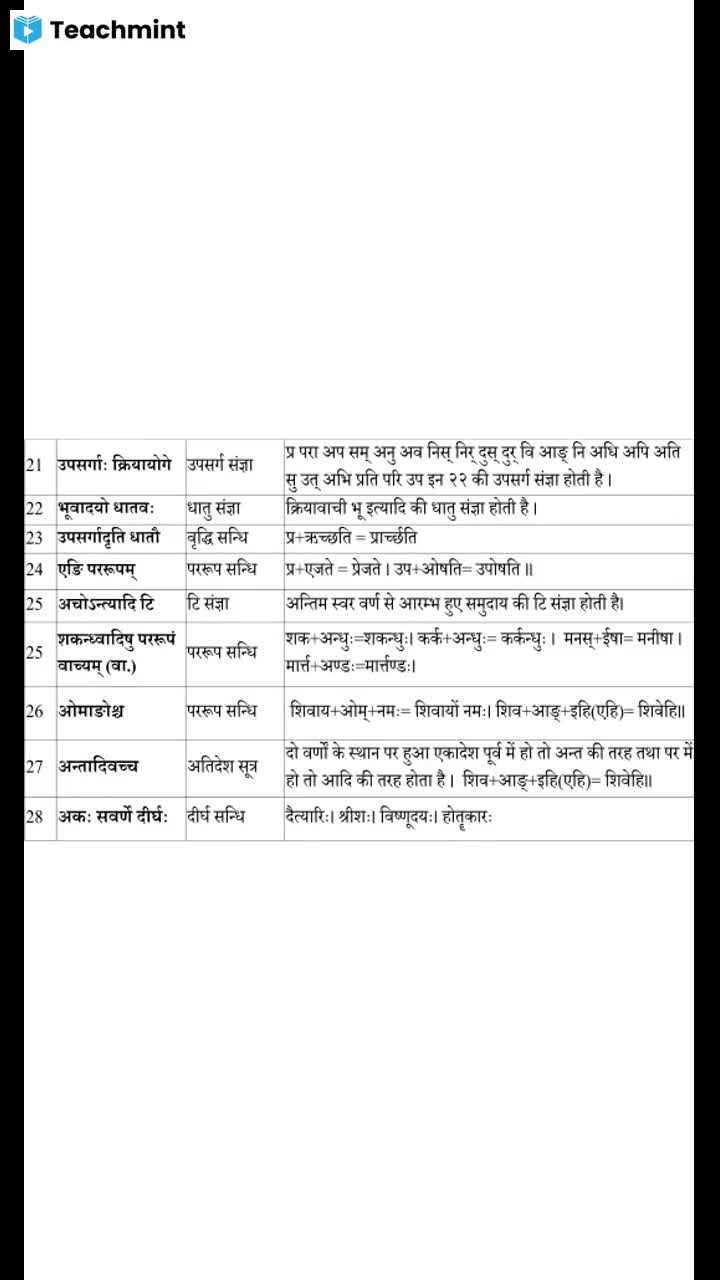 Teachmint
21 उपसर्गाः क्रियायोगे उपसर्ग संज्ञा प्र परा अप सम् अनु अव निस् निर् दुस् दुर् वि आङ् नि अधि अपि अति
सु उत् अभि प्रति परि उप इन २२ की उपसर्ग संज्ञा होती है ।
22 भूवादयो धातवः धातु संज्ञा क्रियावाची भू इत्यादि की धातु संज्ञा होती है ।
23 उपसर्गादृति धातौ वृद्धि सन्धि प्र+ऋच्छति = प्रार्च्छति
24 एङि पररूपम् पररूप सन्धि प्र+एजते = प्रेजते । उप+ओषति= उपोषति ॥
25 अचोऽन्त्यादि टि टि संज्ञा अन्तिम स्वर वर्ण से आरम्भ हुए समुदाय की टि संज्ञा होती है।
25 शकन्ध्वादिषु पररूपं वाच्यम् (वा.) पररूप सन्धि शक+अन्धुः=शकन्धुः। कर्क+अन्धुः= कर्कन्धुः । मनस्+ईषा= मनीषा ।
मार्त्त+अण्डः=मार्त्तण्डः।
26 ओमाङोश्च पररूप सन्धि शिवाय+ओम्+नमः= शिवायों नमः। शिव+आङ्+इहि(एहि)= शिवेहि॥
27 अन्तादिवच्च अतिदेश सूत्र दो वर्णों के स्थान पर हुआ एकादेश पूर्व में हो तो अन्त की तरह तथा पर में
हो तो आदि की तरह होता है । शिव+आङ्+इहि(एहि)= शिवेहि॥
28 अकः सवर्णे दीर्घः दीर्घ सन्धि दैत्यारिः। श्रीशः। विष्णूदयः। होतॄकारः